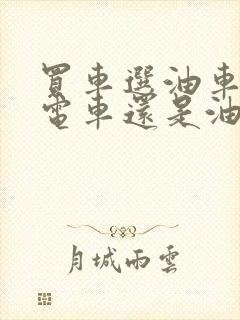 買車選油車
電車還是油
月城雨雲